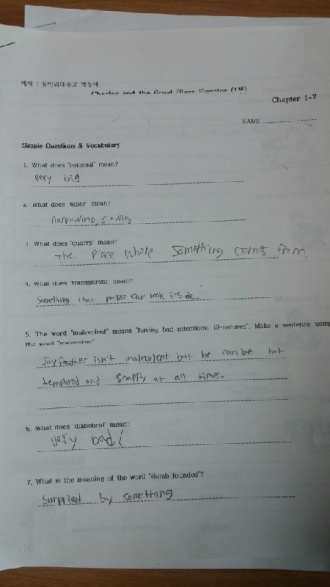 Charlie and the Great Glass Elevator (1부)
Chapter 1-7
NAME
Simple Questions & Vocabulary
1. What does "colossal" mean?
very big
2. What does mean?
3. What does "quarry" mean?
The place where something comes from
4. What does "transparent" mean?
Something that people can look inside.
5. The word "malevolent" means "having bad intentions; ill-natured". Make a sentence using
the word "malevolent"
father isn't malevolent but he can be hot
tempered and snappy at all times.
6. What does diabolical mean?
very bad
7. What is the meaning of the word "dumb-founded"?
Surprised by something